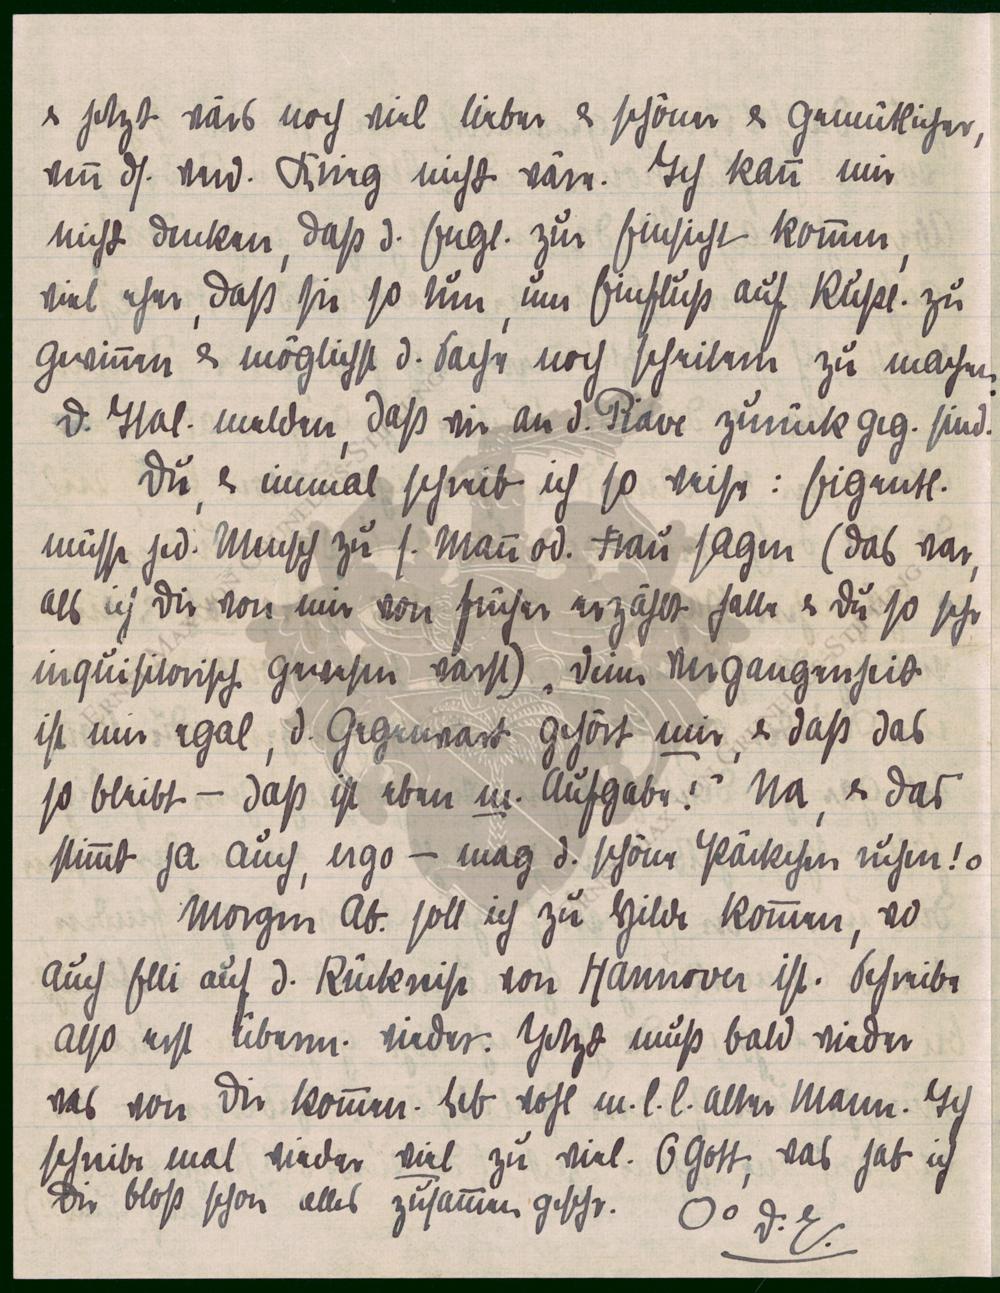 & jetzt wärs noch viel lieber & schöner & gemütlicher,
weñ ds. verd. Krieg nicht wäre. Ich kañ mir
nicht denken, daß d. Engl. zur Einsicht kom̄en,
viel eher, daß sie so tun, um Einfluß auf Rußl. zu
gewiñen & möglichst d. Sache noch schlimm zu machen.
D. Ital. melden, daß wir an d. Piave zurückgeg. sind.
Du, & immal schreib ich so weise: Eigentl.
müsse jed. Mensch zu s. Mañ od. Frau sagen (das war,
als ich Dir von mir von früher erzählt hatte & Du so sehr
inquisitorisch gewesen warst) „deine Vergangenheit
ist mir egal, d. Gegenwart gehört mir, & daß das
so bleibt – daß ist eben m. Aufgabe!“ Na, & das
stim̄t ja auch, ergo – mag d. schöne Päckchen ruhen! o
Morgen Ab. soll ich zu Hilde kom̄en, wo
auch Elli auf d. Rückreise von Hannover ist. Schreibe
also erst überm. wieder. Jetzt muß bald wieder
was von Dir kom̄en. Leb wohl m. l. l. alter Mann. Ich
schreibe mal wieder viel zu viel. O Gott, was hab ich
Dir bloß schon alles zusam̄en geschr. Oo D. E.
ERNST MAX VON GRUNELIUS-STIFTUNG